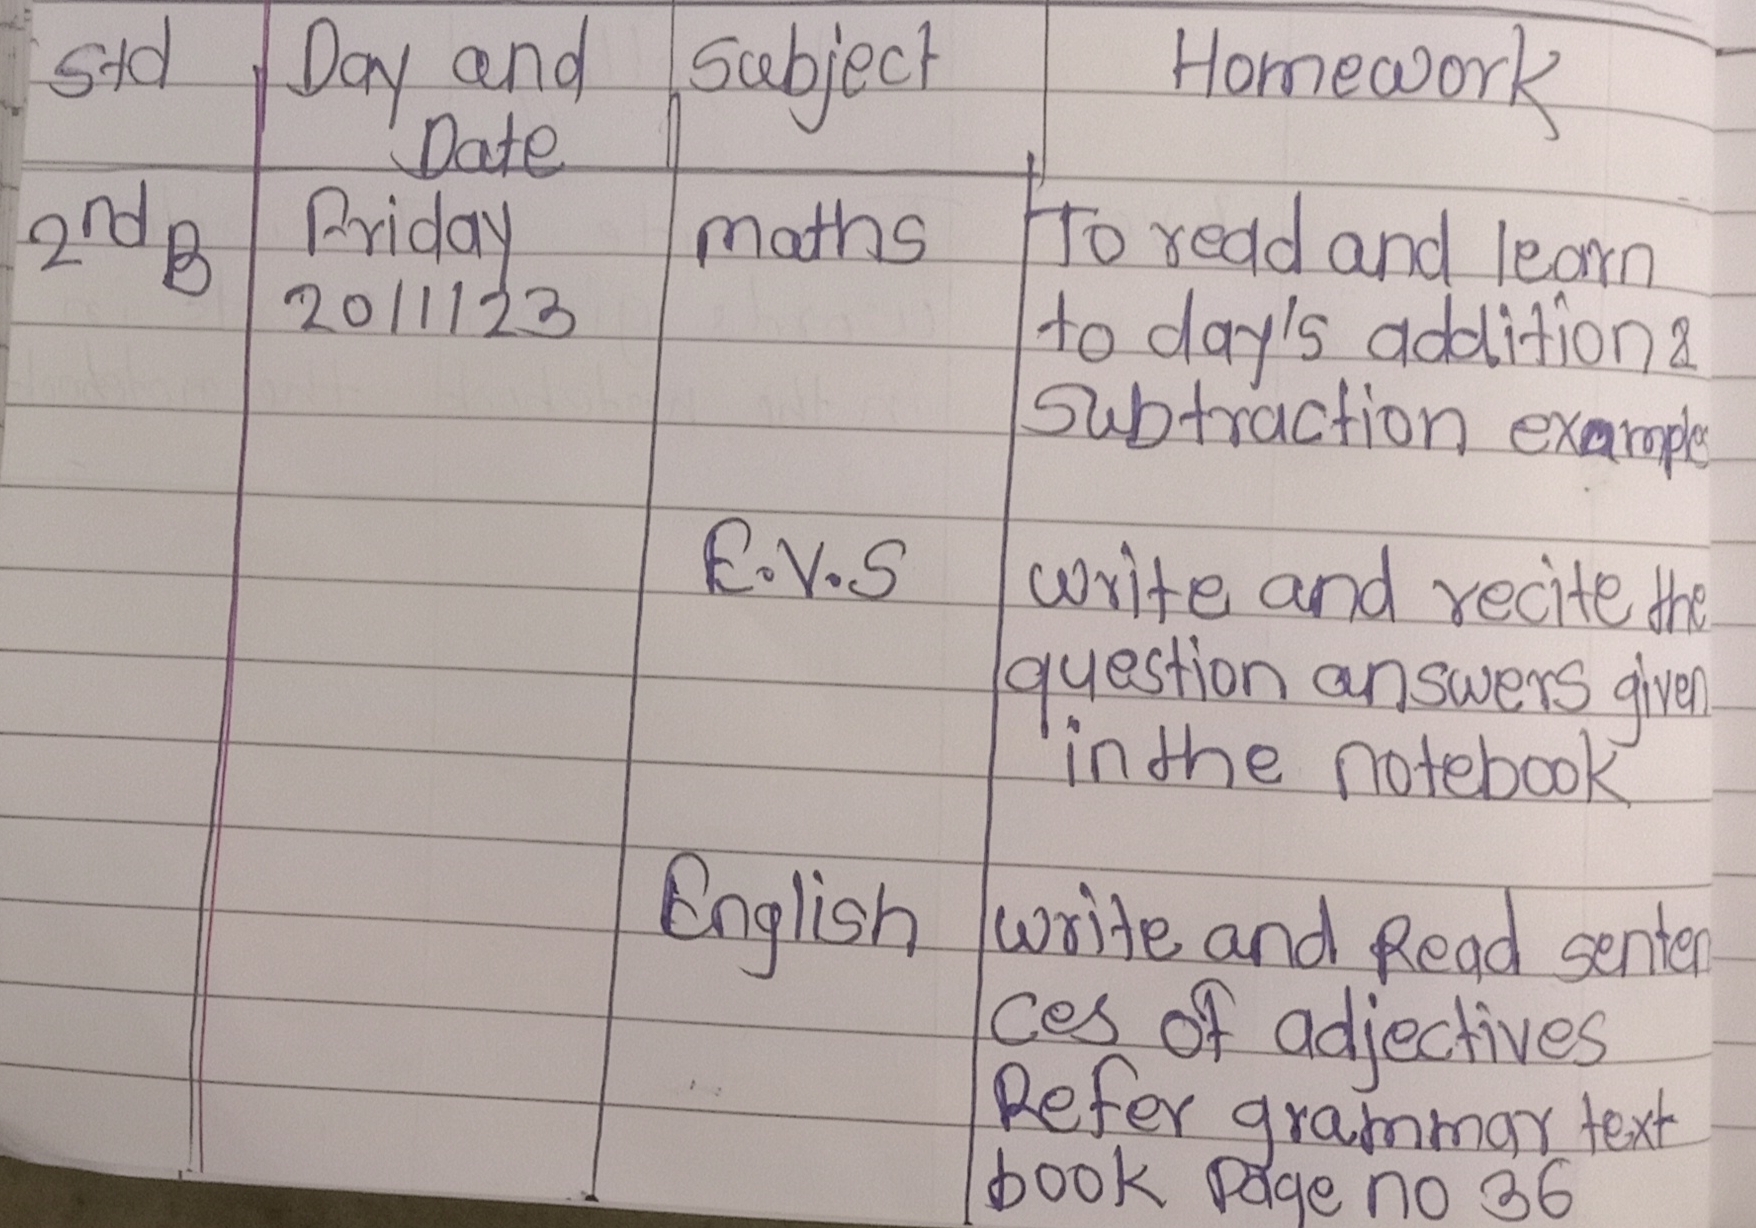 Std Day and Subject Homework
Date
2nd B Friday maths To read and learn
20/1/23 to day's addition &
subtraction example
E.V.S write and recite the
question answers given
in the notebook
English write and Read senten
ces of adjectives
Refer grammar text
book Page no 36